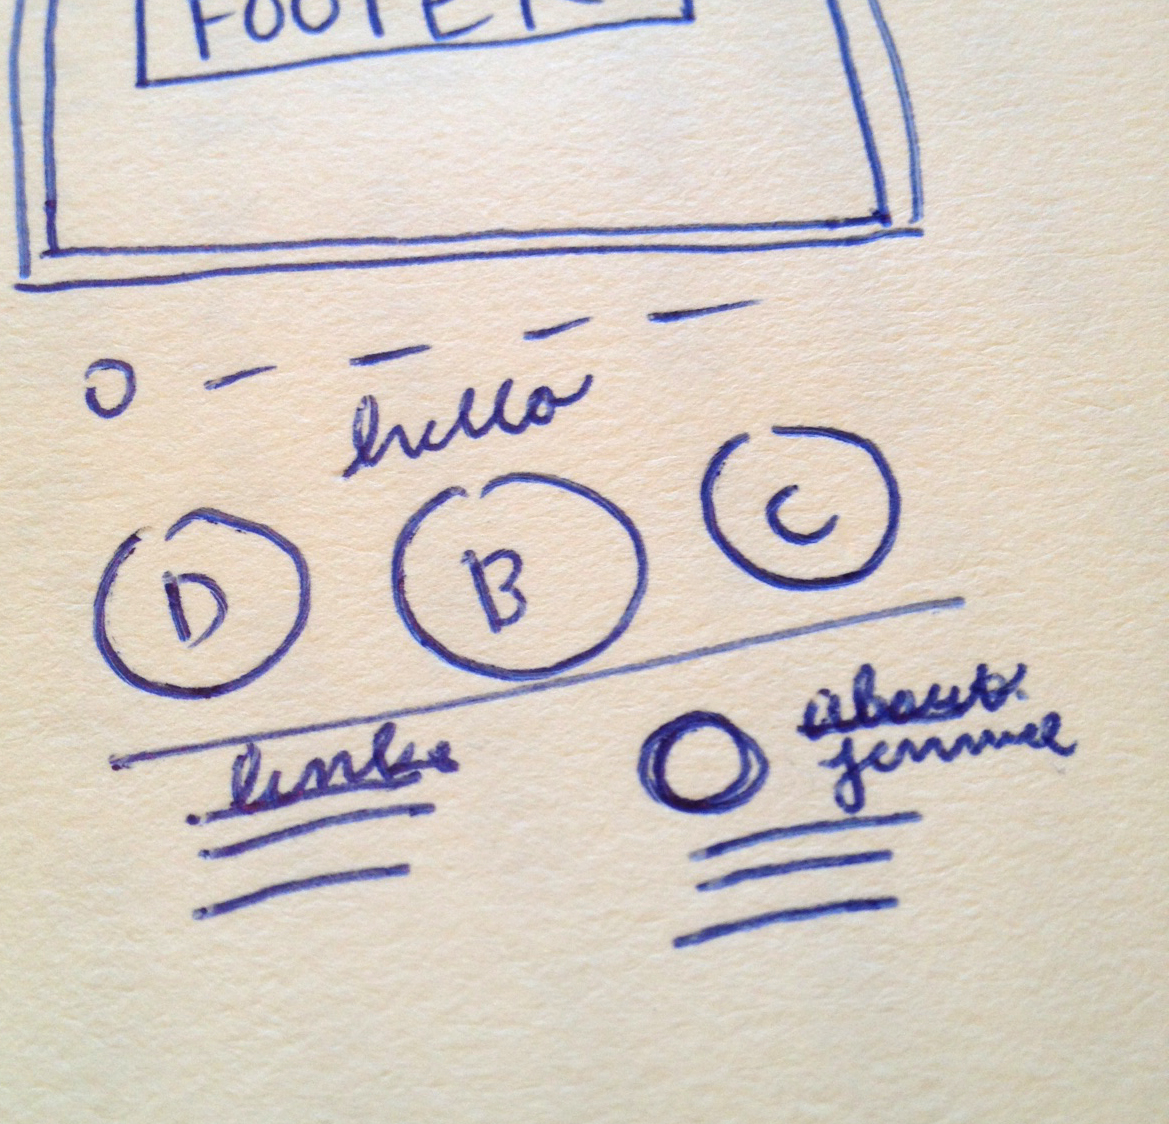 FOOTER
hello
D B C
links
about
jennie